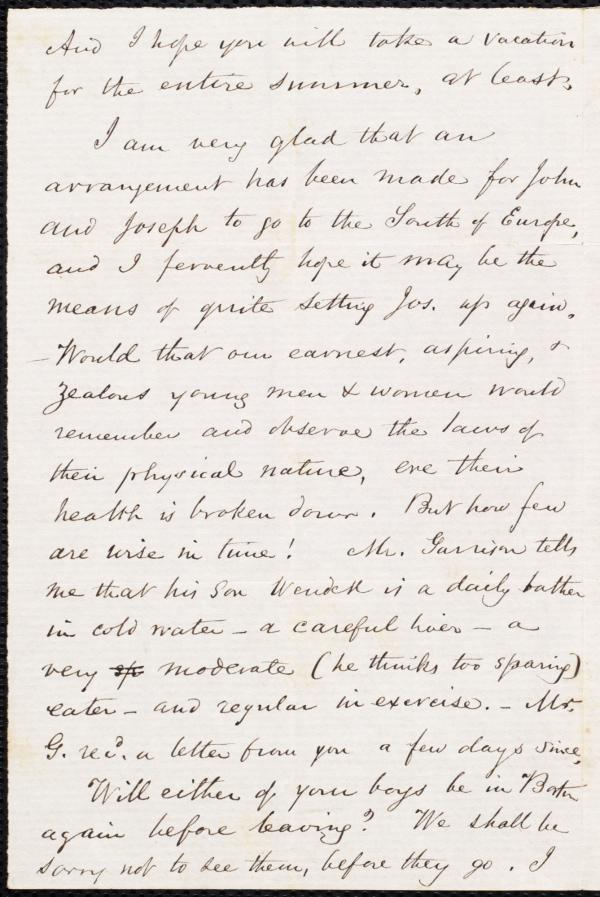 And I hope you will take a vacation
for the entire summer, at least.
I am very glad that an
arrangement has been made for John
and Joseph to go to the South of Europe,
and I fervently hope it may be the
means of quite setting Jos. up again.
– Would that our earnest, aspiring, &
zealous young men & women would
remember and observe the laws of
their physical nature, ere their
health is broken down. But how few
are wise in time! Mr. Garrison tells
me that his son Wendell is a daily bather
in cold water – a careful liver – a
very sp moderate (he thinks too sparing)
eater – and regular in exercise. – Mr.
G. rec'd. a letter from you a few days since,
Will either of your boys be in Boston
again before leaving? We shall be
sorry not to see them, before they go. I